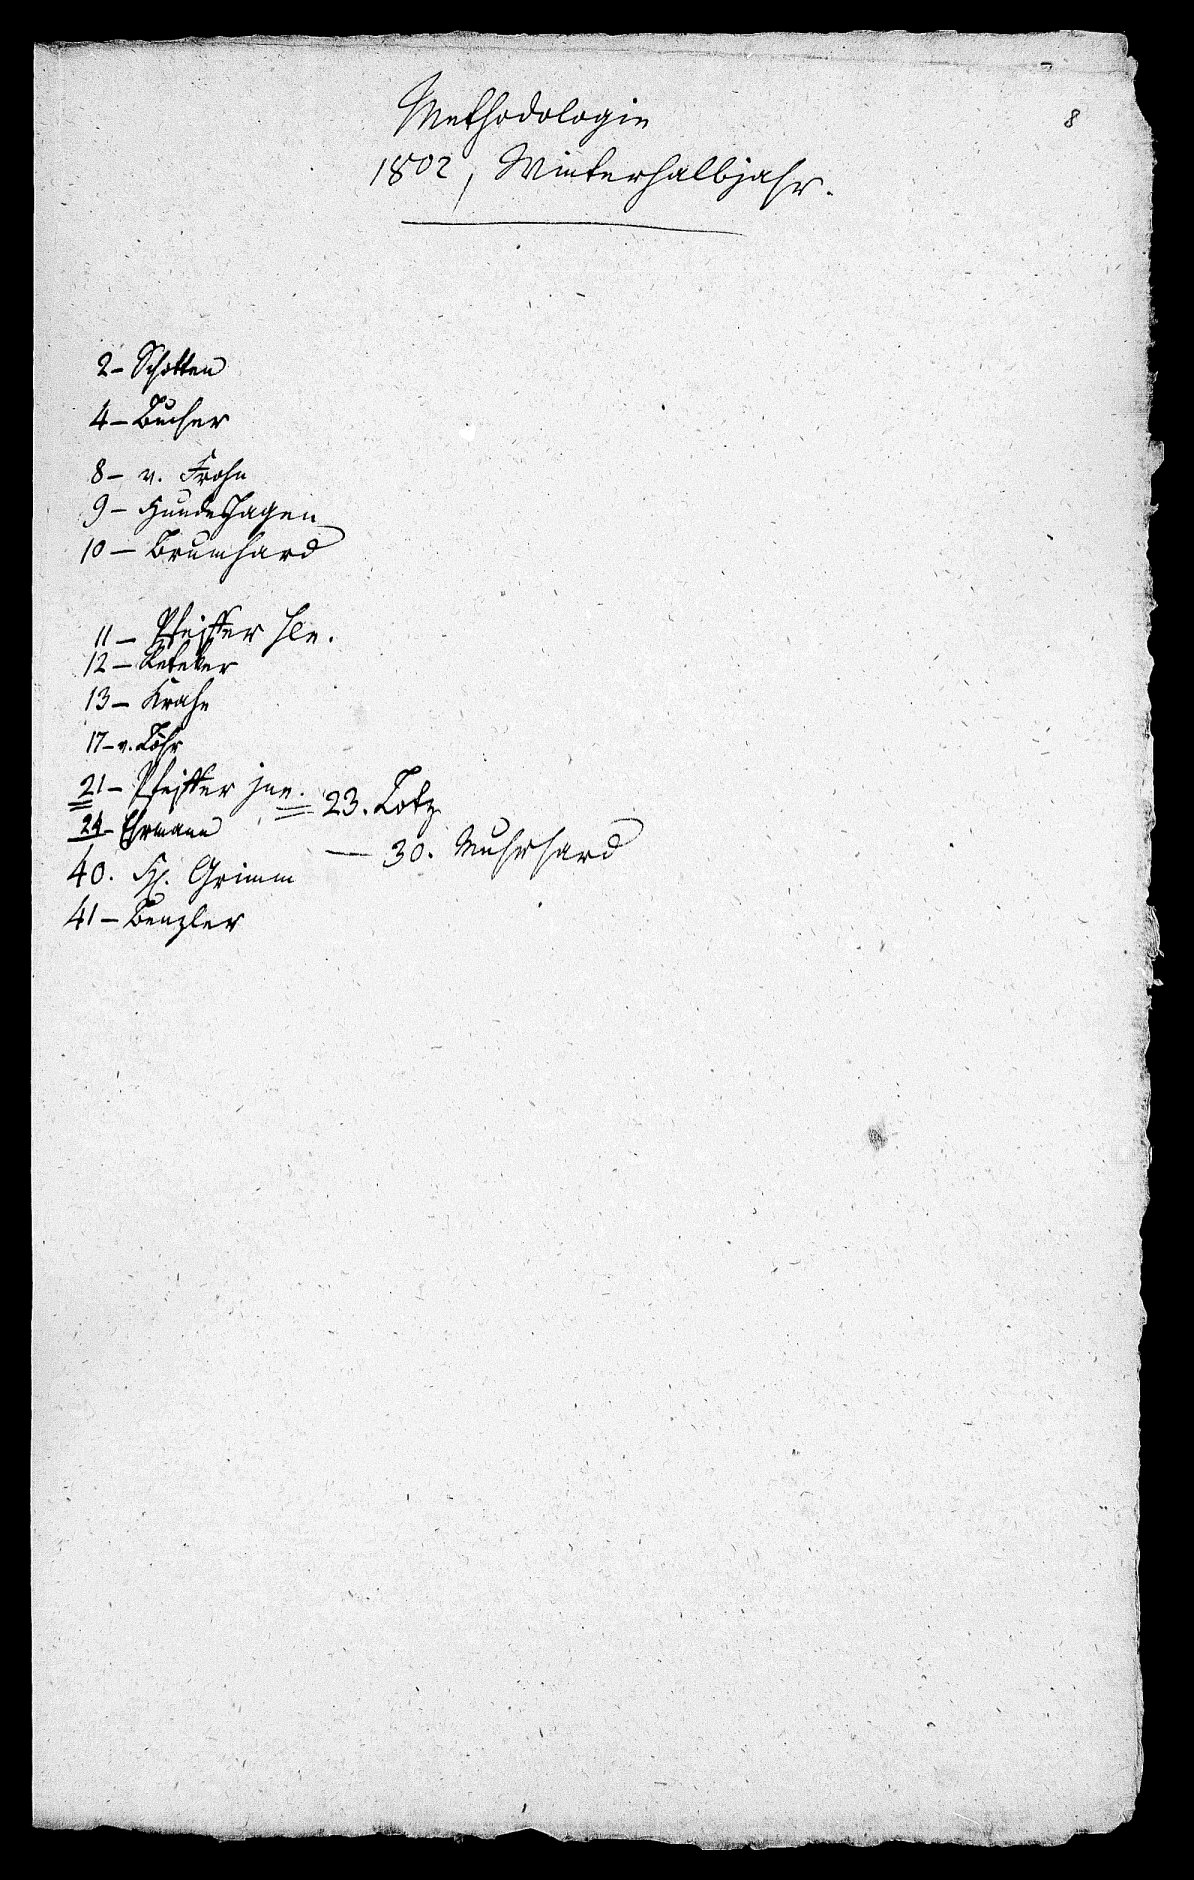 Methodologie
8
1802, Winterhalbjahr.
2 – Schotten
4 – Bucher
8 – v. Frohn
9 – Hundeshagen
10 – Brumhard
11 – Pfeiffer
12 –
13 – Krahe
17 – v. Löhr
21 – Pfeiffer jun.
23. Lotz
24 – Ehrmann
30. Muhrhard
40. Grimm
41 – Benzler